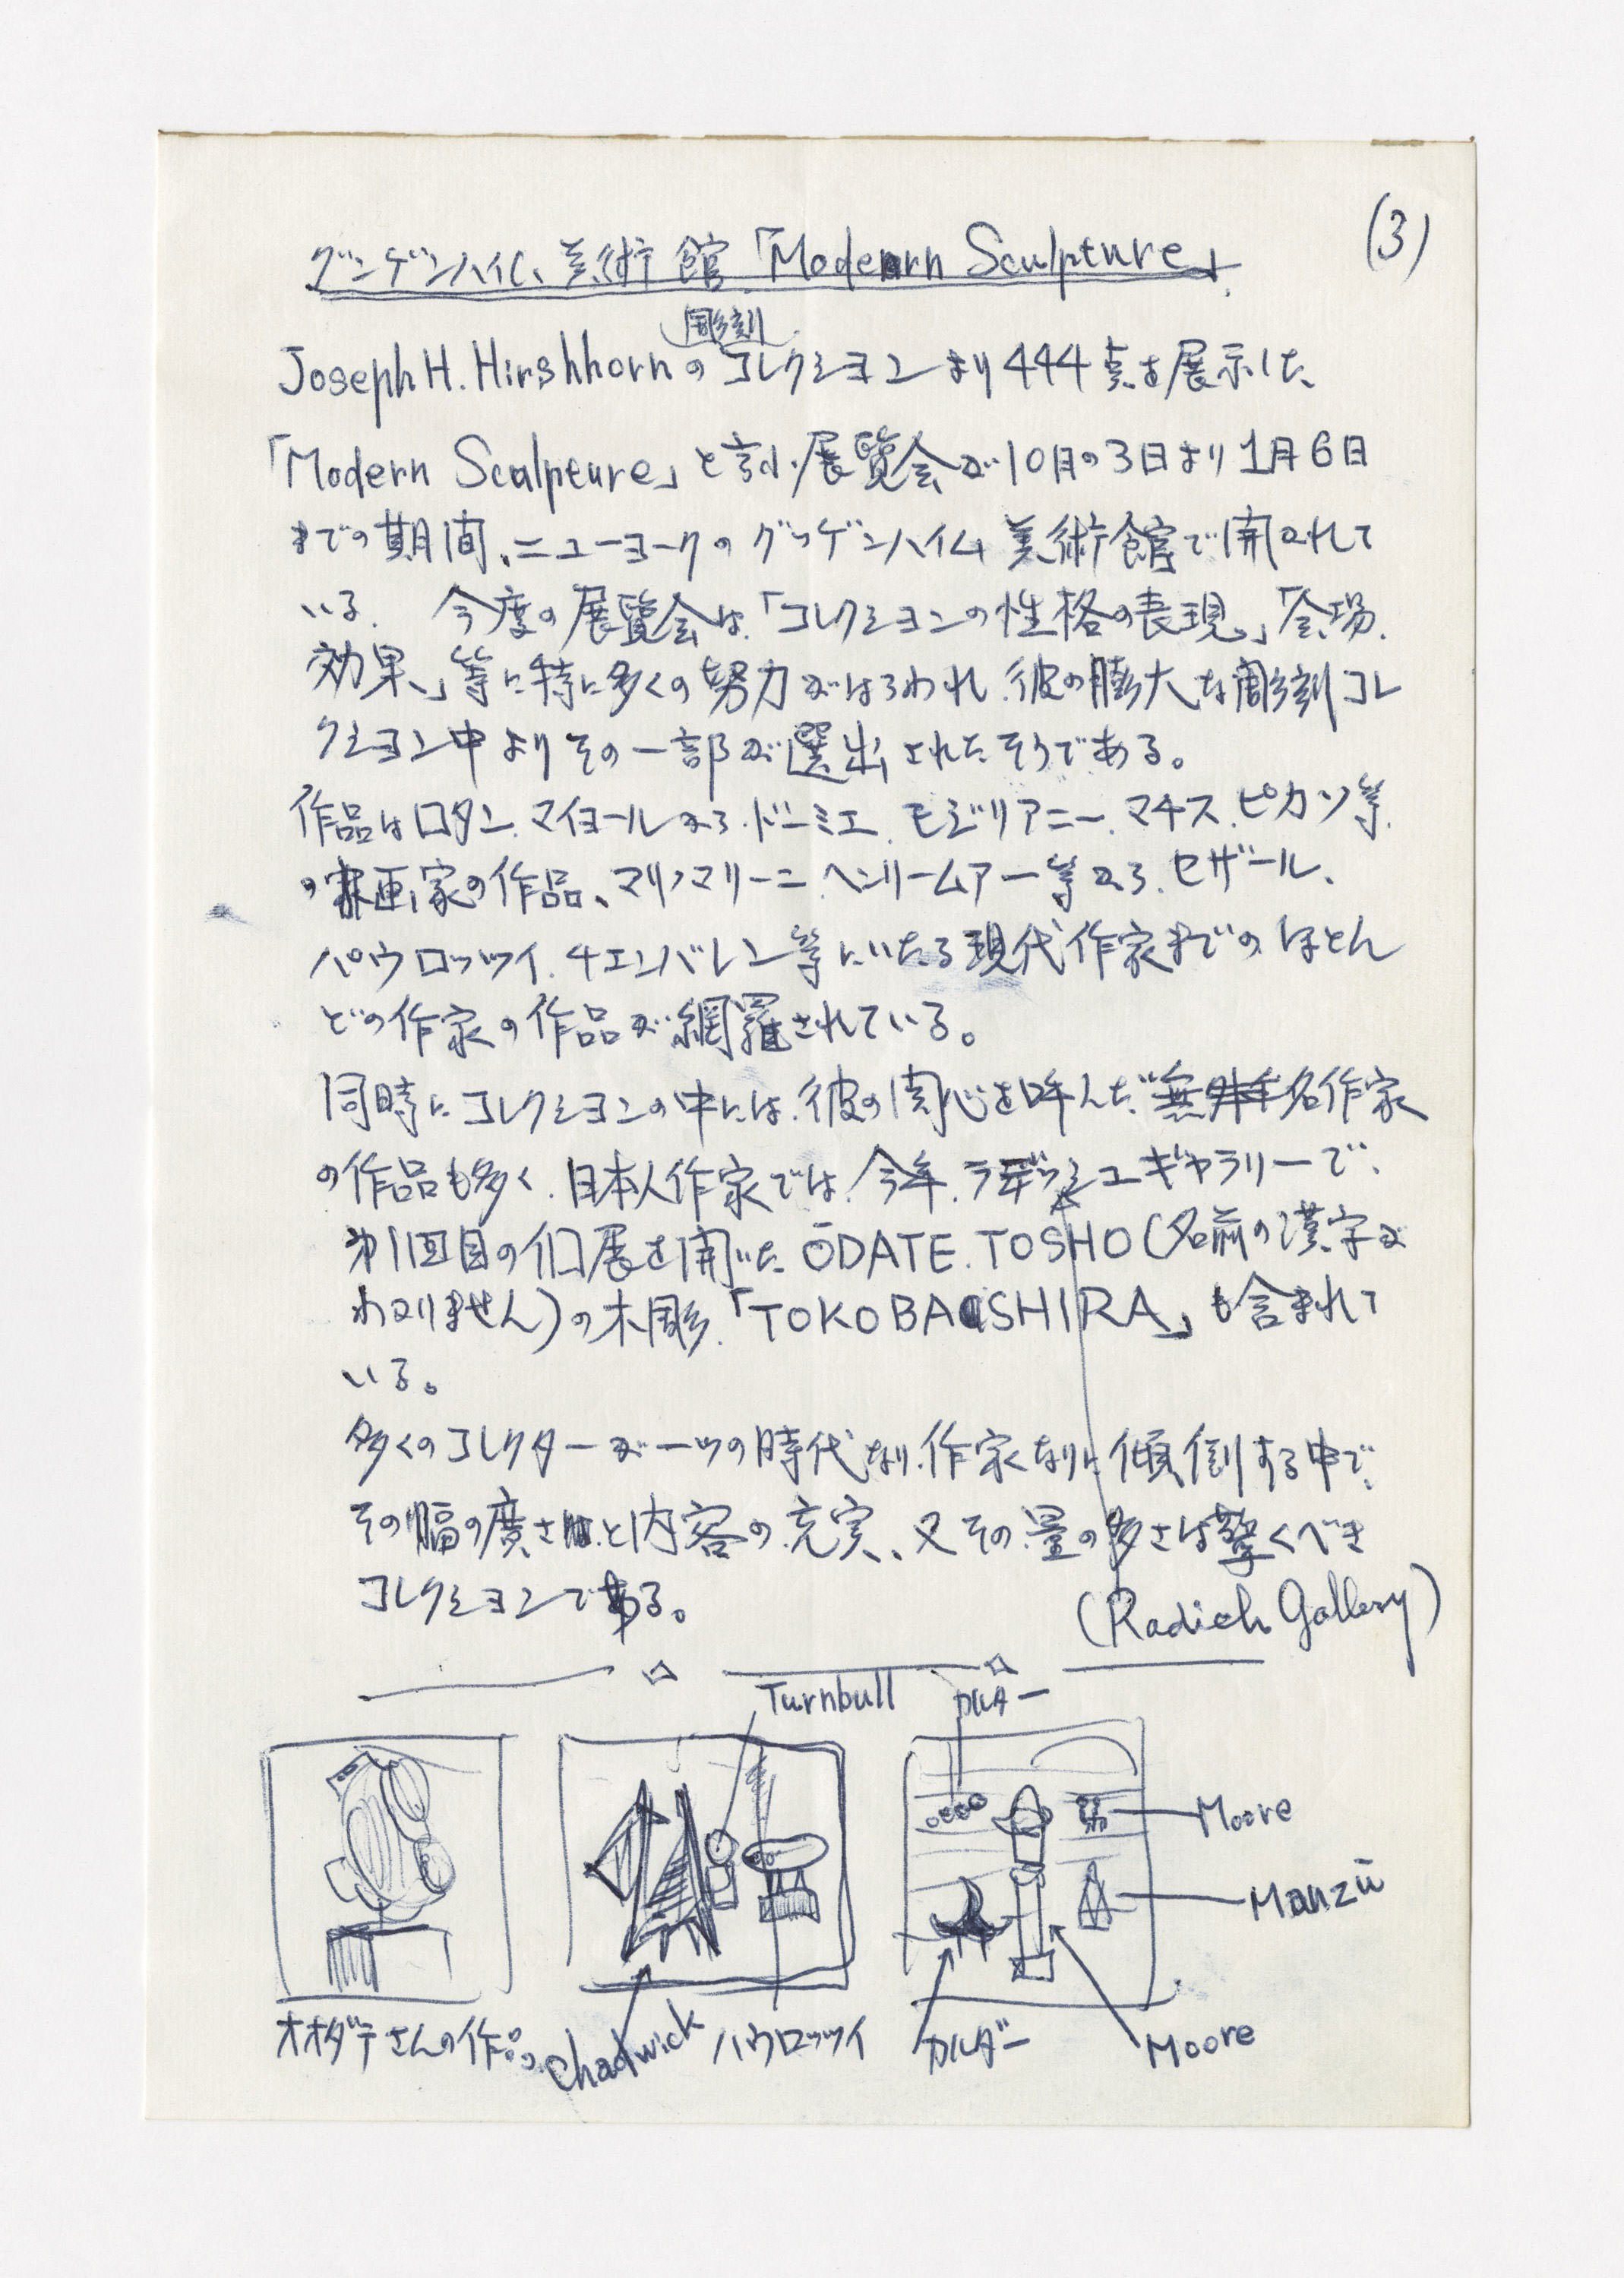 (3)
グッゲンハイム美術館「Modern Sculpture」
彫刻
Joseph H. Hirshhornのコレクションより444点を展示した、
「Modern Sculpture」と言う展覧会が10月の3日より1月6日
までの期間、ニューヨークのグッゲンハイム美術館で開かれて
いる. 今度の展覧会は、「コレクションの性格の表現」「会場
効果」等に特に多くの努力がはらわれ、彼の膨大な彫刻コレ
クション中よりその一部が選出されたそうである。
作品はロダン、マイヨールから、ドーミエ、モジリアニー、マチス、ピカソ等
の画家の作品、マリノマリーニ、ヘンリームアー等から、セザール、
パウロッツイ、チエンバレン等にいたる現代作家までのほとん
どの作家の作品が網羅されている。
同時にコレクションの中には、彼の関心を呼んだ無名作家
の作品も多く、日本人作家では、今年、ラディッシュギャラリーで、
第1回目の個展を開いたŌDATE. TOSHO(名前の漢字が
わかりません)の木彫、「TOKOBASHIRA」も含まれて
いる。
多くのコレクターが一つの時代なり、作家なりに傾倒する中で、
その幅の廣さと内容の充実、又その量の多さは驚くべき
コレクションである。
(Radich Gallery)
Turnbull カルダー
Moore
Manzū
オオダテさんの作品 Chadwick パウロッツイ カルダー Moore